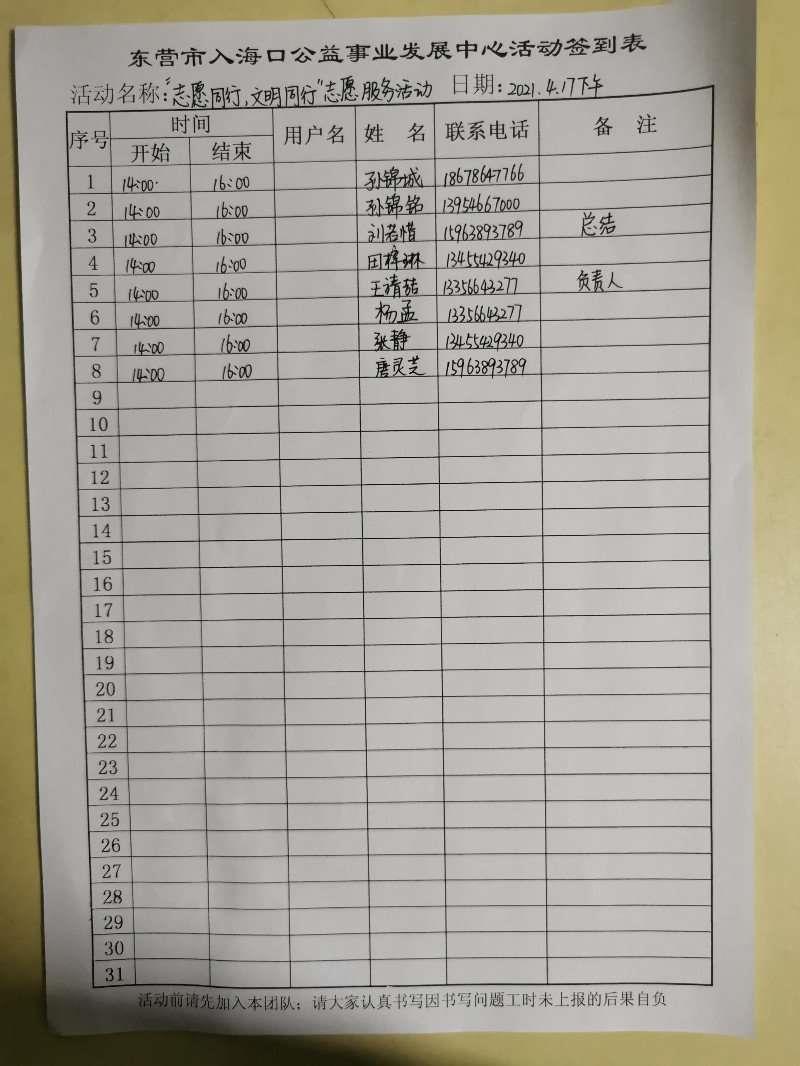 东营市入海口公益事业发展中心活动签到表
活动名称:“志愿同行,文明同行”志愿服务活动 日期:2021.4.17下午
序号 时间 用户名 姓名 联系电话 备注
开始 结束
1 14:00 16:00 孙锦城 18678647766
2 14:00 16:00 孙锦铭 13954667000
3 14:00 16:00 刘若惜 15963893789 总结
4 14:00 16:00 田梓琳 13455429340
5 14:00 16:00 王清喆 13356643277 负责人
6 14:00 16:00 杨孟 13356643277
7 14:00 16:00 张静 13455429340
8 14:00 16:00 唐灵芝 15963893789
9
10
11
12
13
14
15
16
17
18
19
20
21
22
23
24
25
26
27
28
29
30
31
活动前请先加入本团队;请大家认真书写因书写问题工时未上报的后果自负